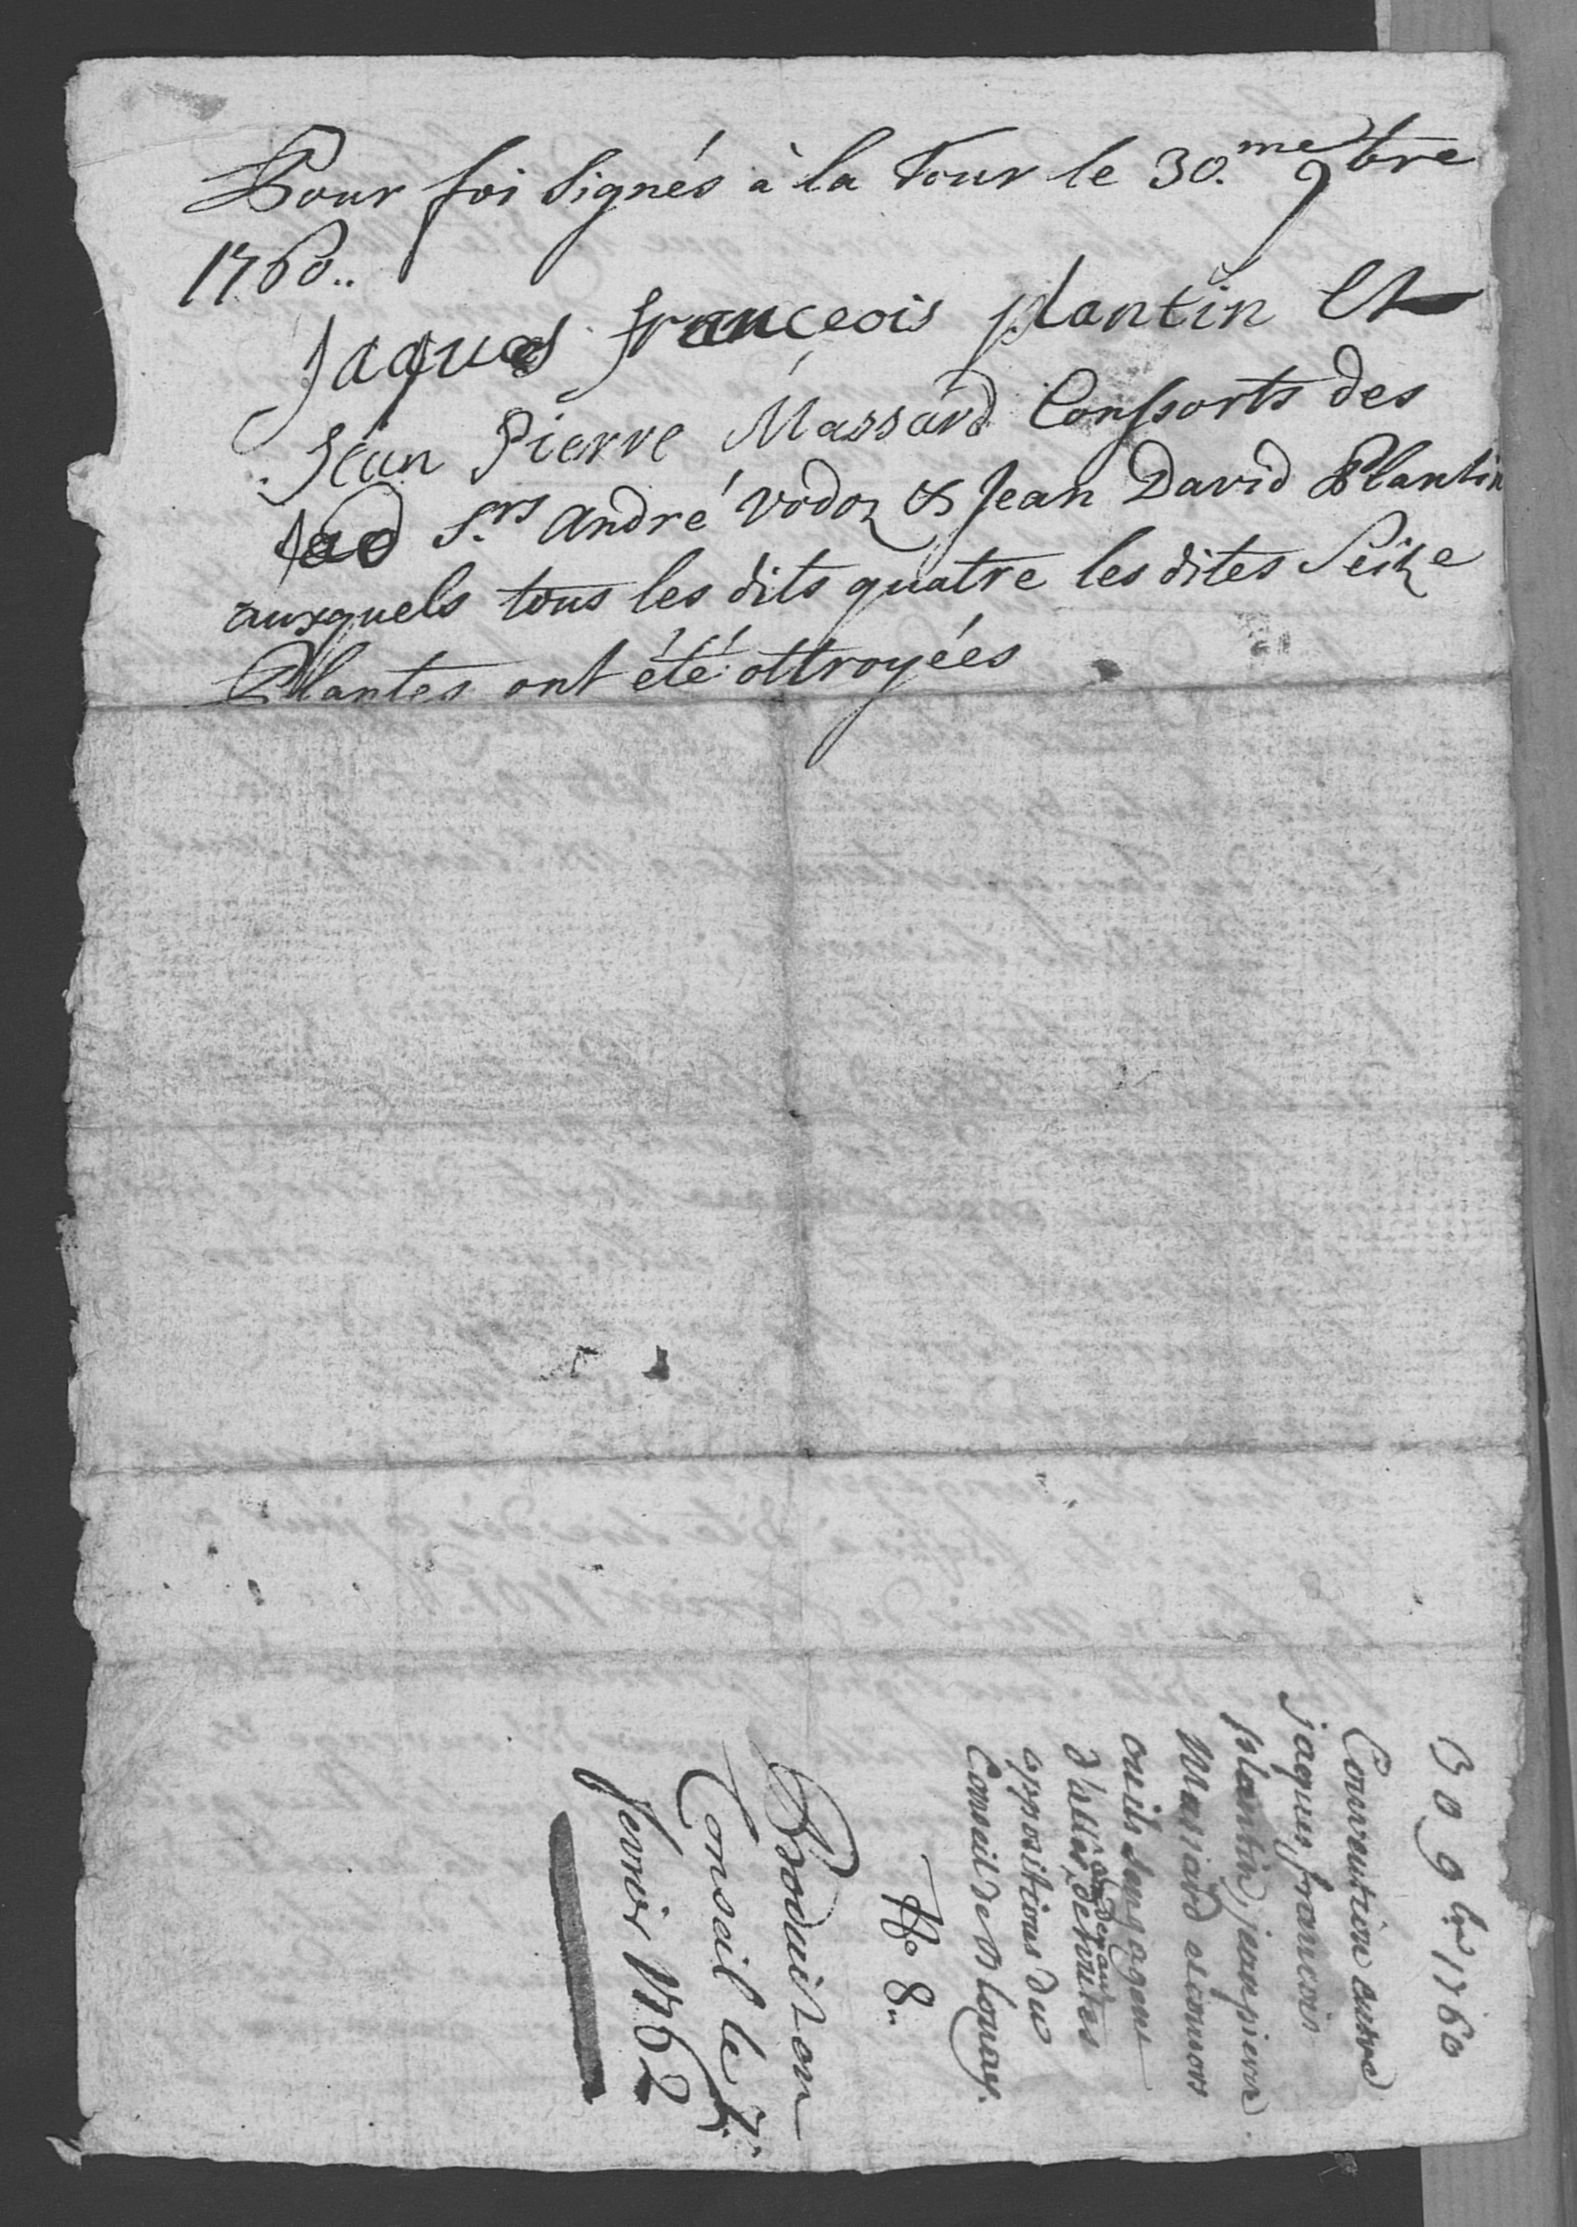 Pour foi Signés à la Tour le 30.me 9bre
1760..
Jaques franceois plantin Et
Jean Pierre Massard Conssorts des
S.rs André Vodoz & Jean David Plantin
auxquels tous les dits quatre les dites Seize
Plantes ont été ottroyées
30 9br 1760
Convention entre
jaques francois
plantin, jean pierre
Massard et consors
ou ils sengagent
oppositions du
Conseil de Blonay.
No 8..
Produit en
Conseil le
fevrier 1762